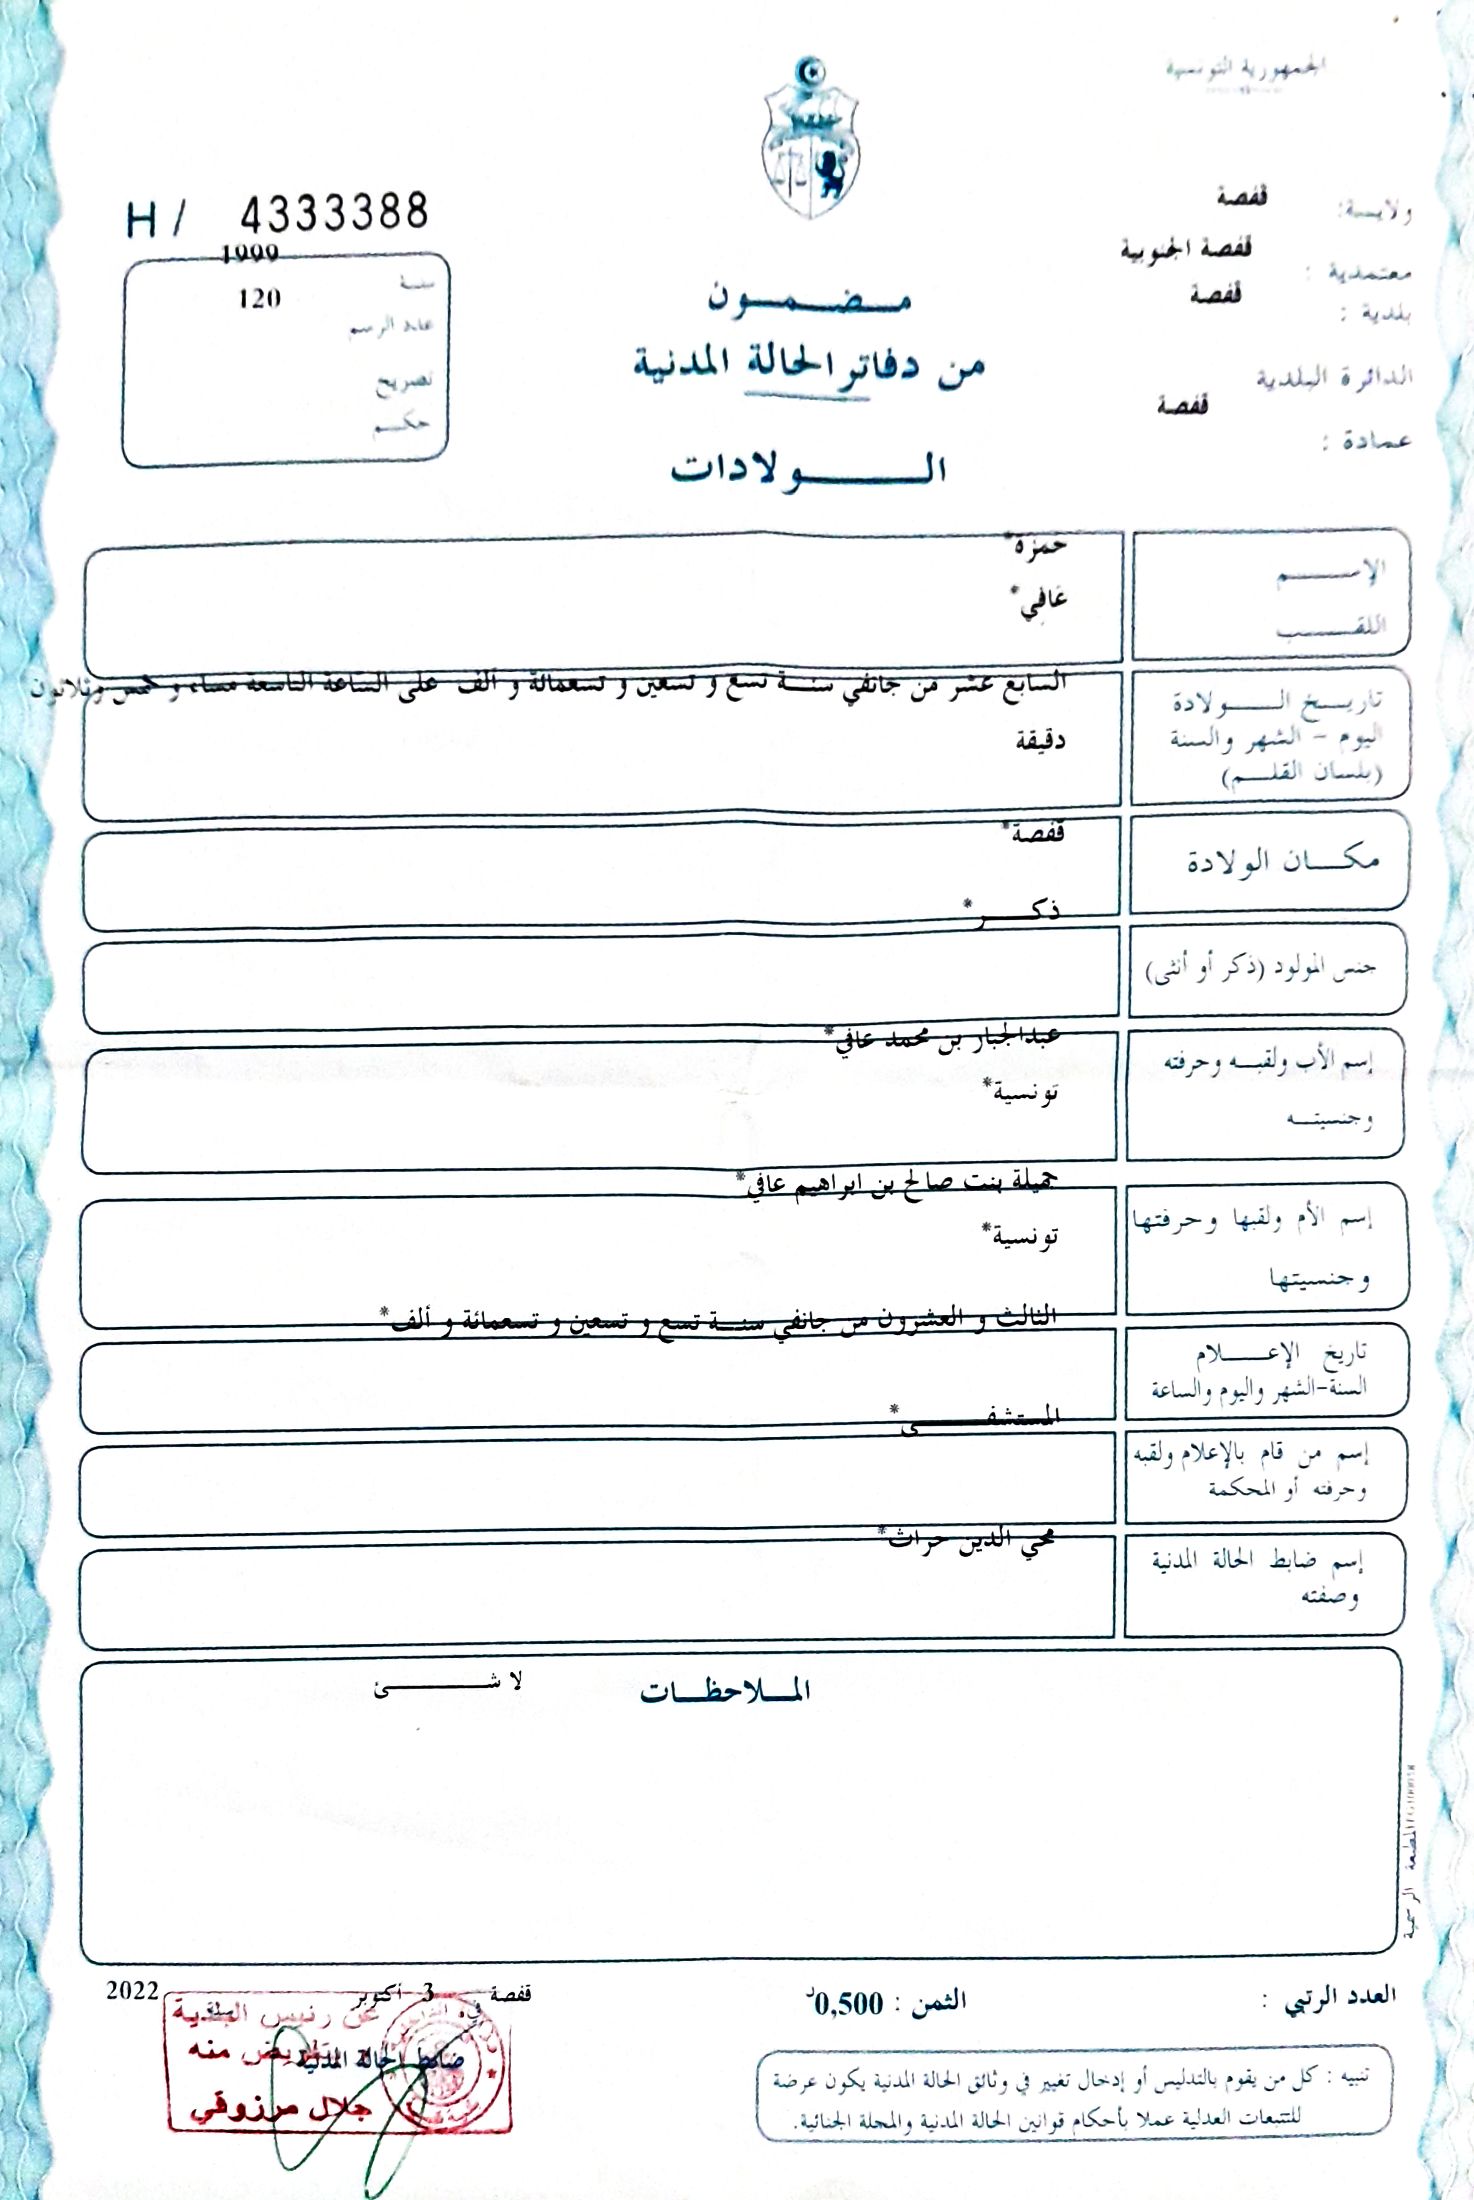 الجمهورية التونسية
ولايـة: قفصة
معتمدية : قفصة الجنوبية
بلدية : قفصة
الدائرة البلدية
عمادة : قفصة
H / 4333388
سنـة 1999
عدد الرسم 120
تصريح
حكـم
مـضـمـون
من دفاتر الحالة المدنية
الـولادات
الإسـم حمزة*
اللقـب عَافِي*
تاريـخ الـولادة السابع عشر من جانفي سنـة تسع و تسعين و تسعمائة و ألف على الساعة التاسعة مساء و خمس وثلاثون
اليوم - الشهر والسنة دقيقة
(بلسان القلـم)
مكـان الولادة قفصة*
جنس المولود (ذكر أو أنثى) ذكـر*
إسم الأب ولقبـه وحرفته عبدالجبار بن محمد عافي*
وجنسيتـه تونسية*
إسم الأم ولقبها وحرفتها جميلة بنت صالح بن ابراهيم عافي*
وجنسيتها تونسية*
تاريخ الإعـلام الثالث و العشرون من جانفي سنـة تسع و تسعين و تسعمائة و ألف*
السنة-الشهر واليوم والساعة
إسم من قام بالإعلام ولقبه المستشفـى*
وحرفته أو المحكمة
إسم ضابط الحالة المدنية محي الدين حراث*
وصفته
المـلاحظـات لا شـئ
المطبعة الرسمية
العدد الرتبي :
الثمن : 0,500د
قفصة 3 أكتوبر 2022
في
ضابط الحالة المدنية
عن رئيس البلدية
وبتفويض منه
جلال مرزوقي
تنبيه : كل من يقوم بالتدليس أو إدخال تغيير في وثائق الحالة المدنية يكون عرضة
للتتبعات العدلية عملا بأحكام قوانين الحالة المدنية والمجلة الجنائية.